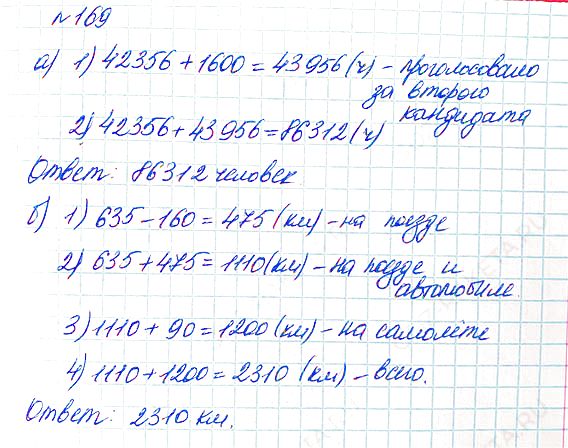 №169
а) 1) 42356 + 1600 = 43956 (ч) - проголосовало
за второго
кандидата
2) 42356 + 43956 = 86312 (ч)
Ответ: 86312 человек.
б) 1) 635 - 160 = 475 (км) - на поезде
2) 635 + 475 = 1110 (км) - на поезде и
автомобиле.
3) 1110 + 90 = 1200 (км) - на самолёте
4) 1110 + 1200 = 2310 (км) - всего.
Ответ: 2310 км.